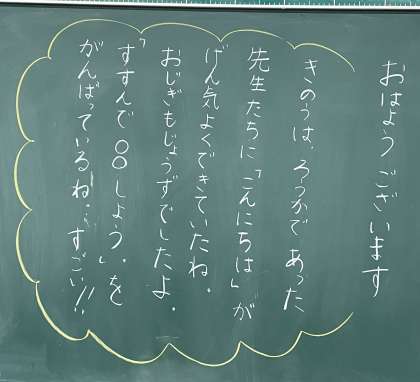 おはようございます
きのうは、ろうかであった
先生たちに「こんにちは」が
げん気よくできていたね。
おじぎもじょうずでしたよ。
「すすんで〇〇しよう。」を
がんばっているね。すごい!!